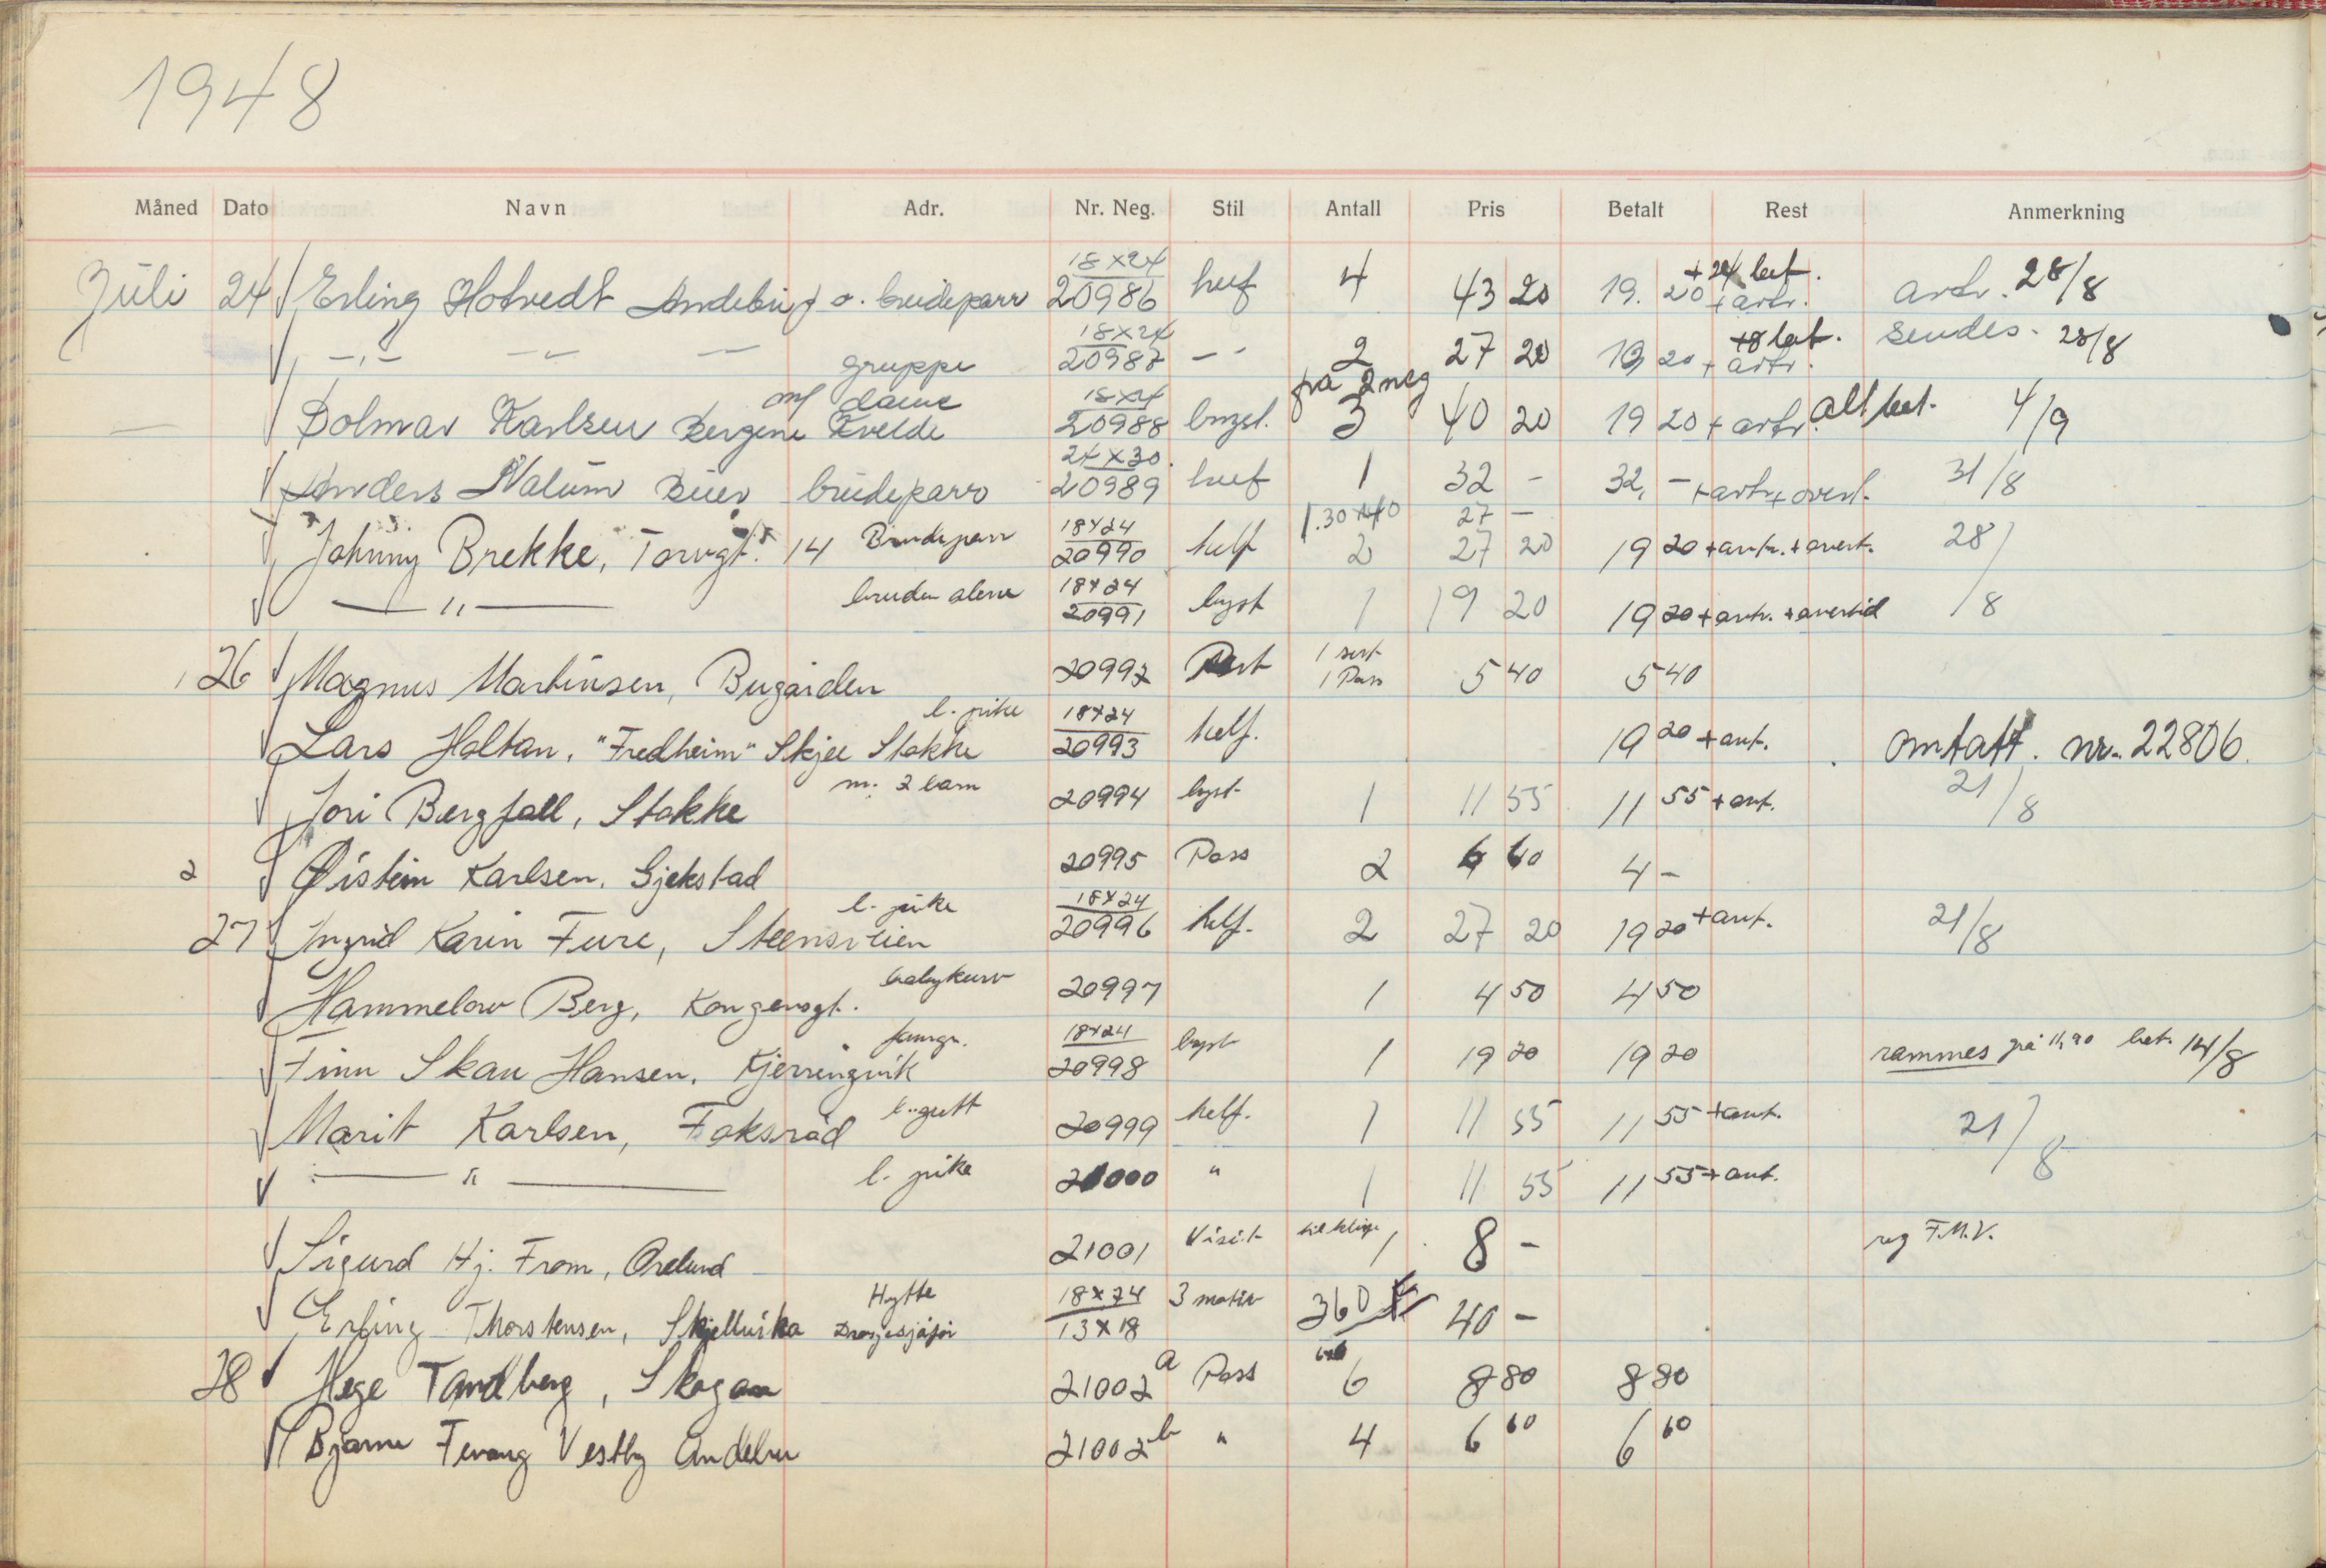 1948
Måned Dato Navn Adr. Nr. Neg. Stil Antall Pris Betalt Rest Anmerkning
Juli 24 Erling Hotvedt Andebu o. brudeparr 18x24 20986 4 43 20 19. 20 + 24 bet. + artr. artr. 28/8
gruppe 18x24 20987 2 27 20 19 20 + 8 bet. + artr. sendes. 28/8
Bolmar Karlsen Bergene Kvelde m/ dame 18x24 20988 bryst. på 2 neg 3 40 20 19 20 + artr. alt bet. 4/9
Anders Nalum brudeparr 24x30 20989 1 32 - 32, - + artr. + overt. 31/8
Johnny Brekke, Torvgt. 14 Brudeparr 18x24 20990 helf 1. 30x40 27 - 2 27 20 19 20 + antr. + overt. 28/8
— " — bruden alene 18x24 20991 byst 1 19 20 19 20 + antr. + overtid
26 Magnus Martinsen, Bugården 20992 1 Pass 5 40 5 40
Lars Holtan, "Fredheim" Skjee Stokke l. pike 18x24 20993 helf. 19 20 + ant. omtatt. nr. 22806.
Jori Bergfall, Stokke m. 2 barn 20994 byst. 1 11 55 11 55 + ant. 21/8
2 Øistein Karlsen, Gjekstad 20995 Pass 2 6 60 4 -
27 Ingrid Karin Fure, l. pike 18x24 20996 helf. 2 27 20 19 20 + ant. 21/8
Hammelow Berg, Kongensgt. babykurv 20997 1 4 50 4 50
Finn Skau Hansen, Kjerringvik famgr. 18x24 20998 byst 1 19 20 19 20 rammes på 11,90 bet. 14/8
Marit Karlsen, Fokserød l. gutt 20999 helf. 1 11 55 11 55 + ant. 21/8
— " — l. pike 21000 " 1 11 55 11 55 + ant.
Sigurd Hj. From, Orelund 21001 Visit 1 8 - reg F.M.V.
Erling Thorstensen, Skjellvika Hytte Drosjesjåfør 18x24 13x18 3 motiv 360 40 -
28 Hege Tandberg, Skogan 21002 a Pass 6 8 80 8 80
Bjarne Fevang Vestby Andebu 21002 b " 4 6 60 6 60